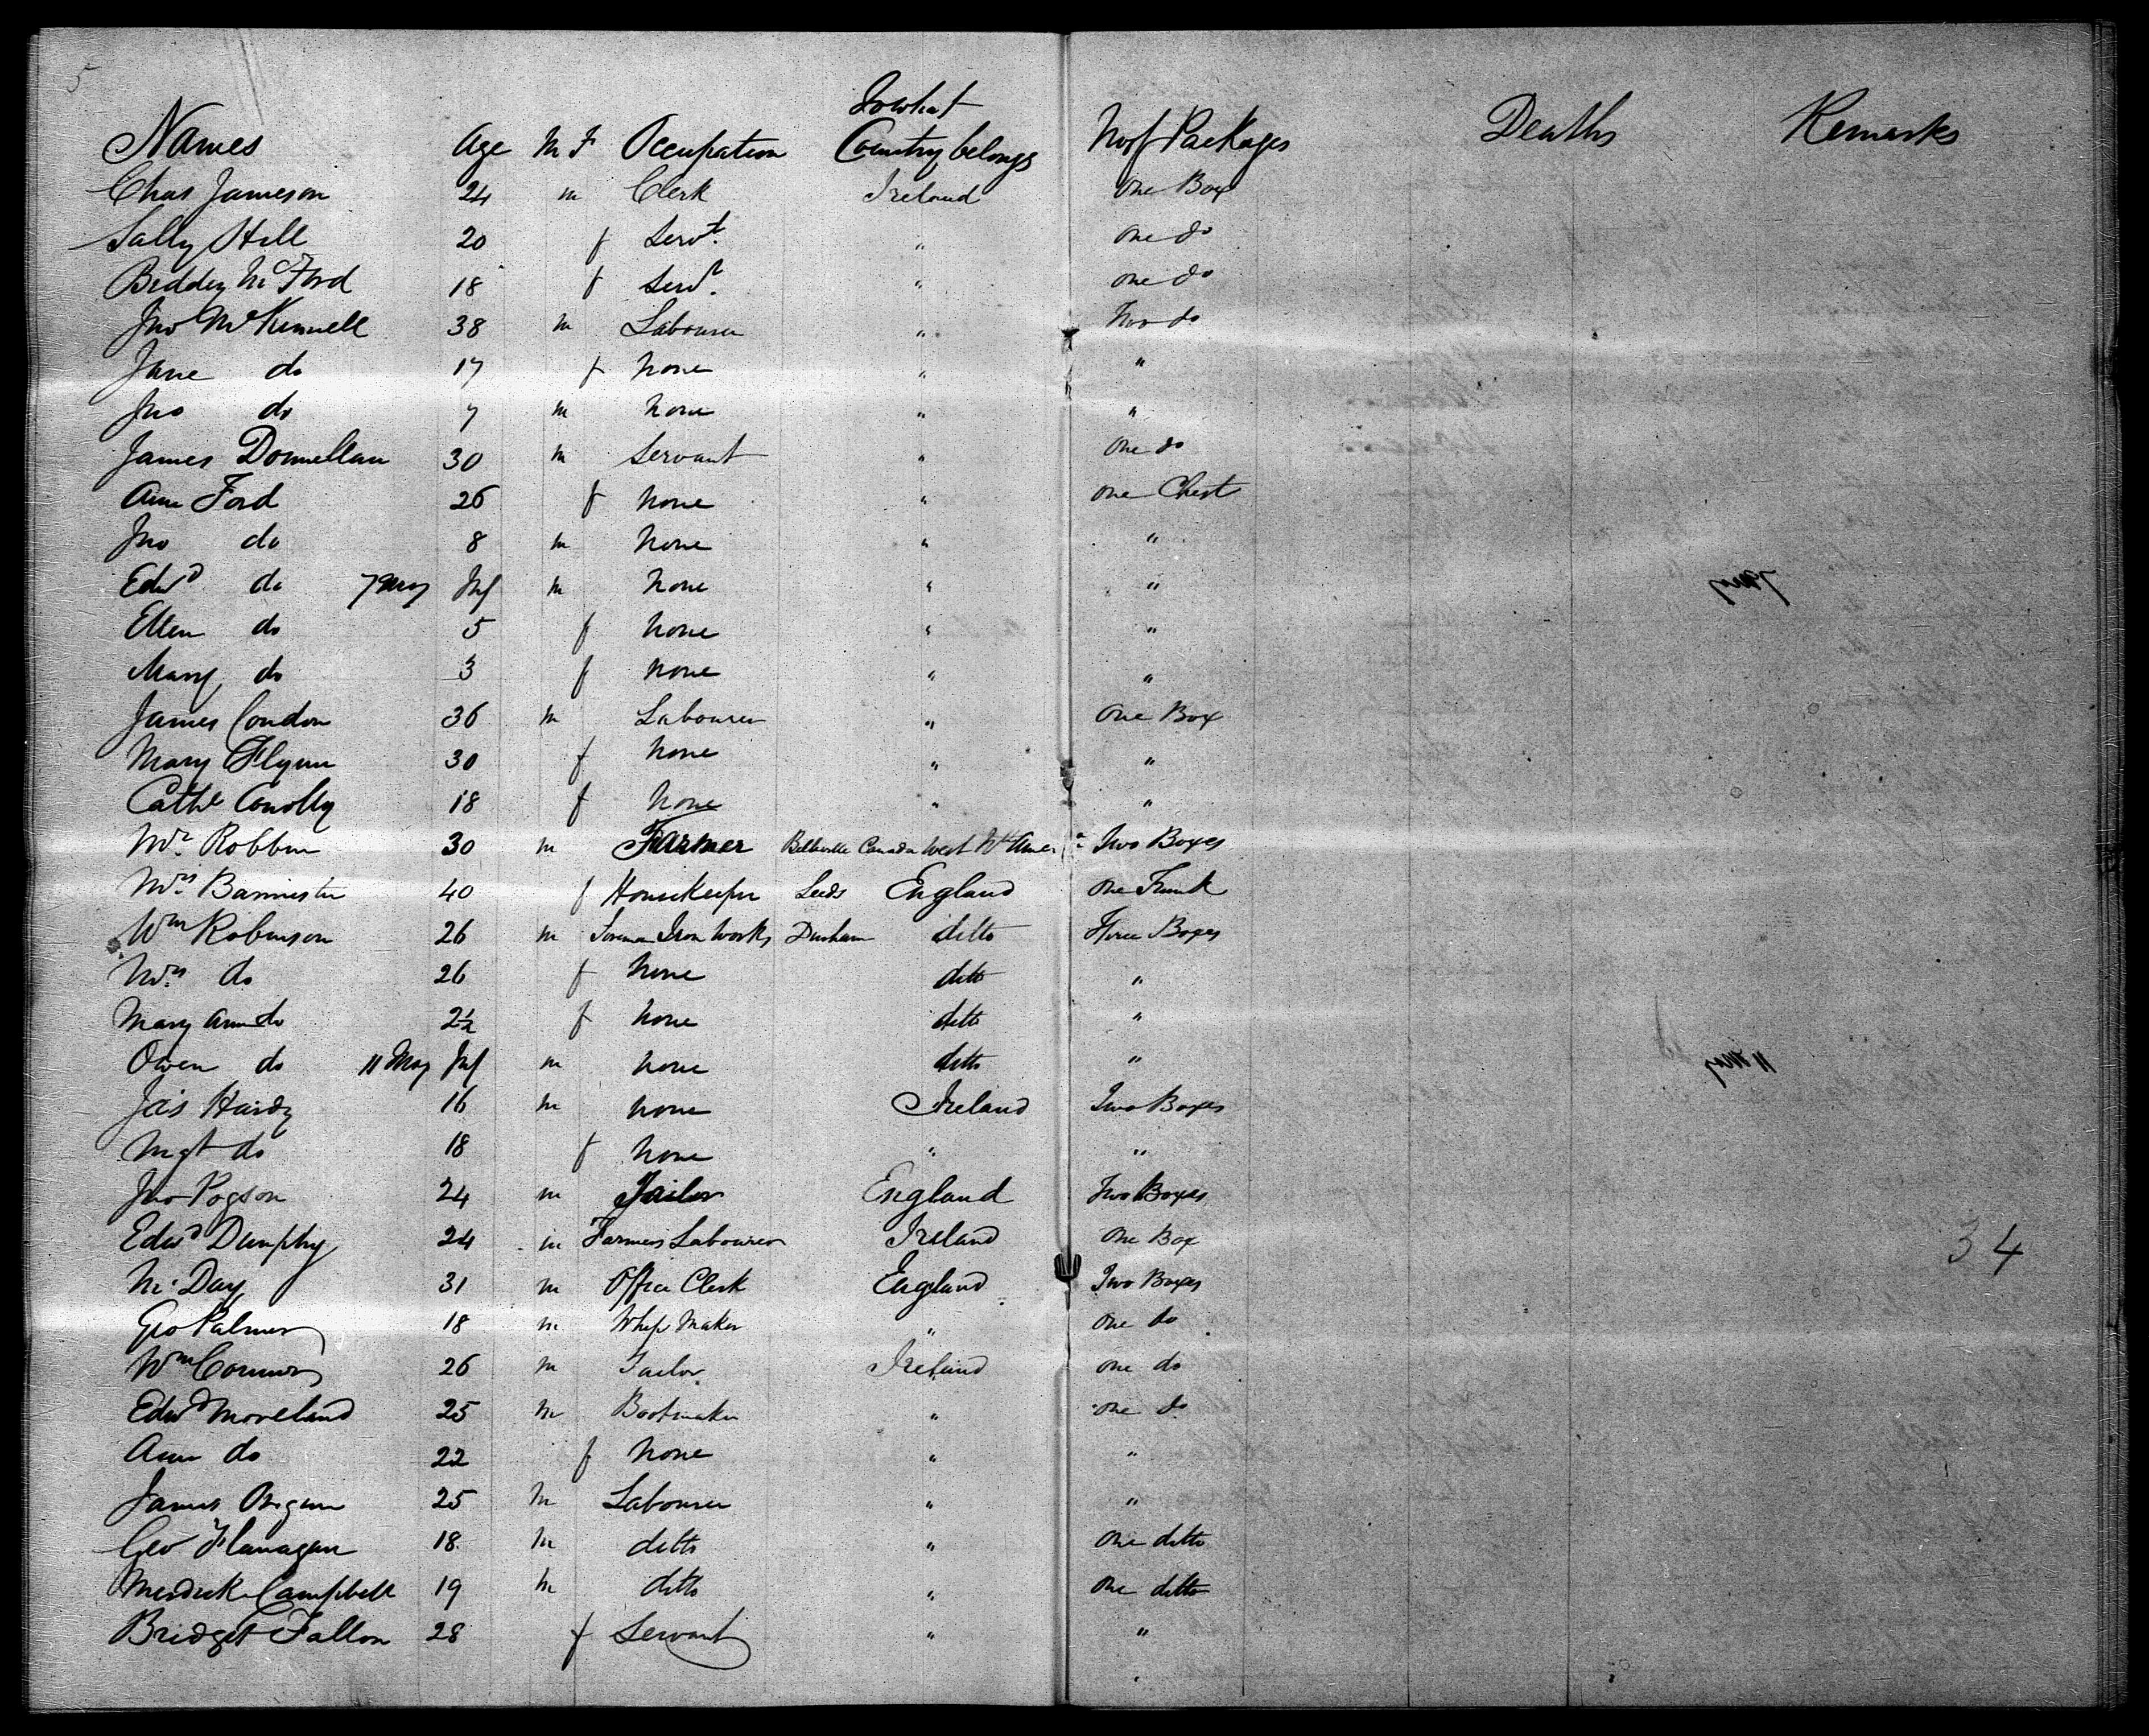 5
Names Age M F Occupation To what Country belongs No of Packages Deaths Remarks
Chas Jameson 24 m Clerk Ireland One Box
Sally Hill 20 f Servt. " One do
Biddy McFord 18 f Servt. " One do
Jno McKennell 38 m Labourer " Two do
Jane do 17 f None " "
Jno do 7 m None " "
James Donnellan 30 m Servant " One do
Ann Ford 26 f None " One Chest
Jno do 8 m None " "
Edwd do 7 Moy Inf m None " "
Ellen do 5 f None " "
Mary do 3 f None " "
James Condon 36 m Labourer " One Box
Mary Flynn 30 f None " "
Cathe Conolly 18 f None " "
Mr. Robbin 30 m Farmer Belleville Canada West Nth Amer Two Boxes
Mrs. Bannister 40 f Housekeeper Leeds England One Trunk
Wm Robinson 26 m Foreman Iron Works Durham ditto Three Boxes
Mrs. do 26 f None ditto "
Mary Ann do 2½ f None ditto "
Owen do 11 Moy Inf m None ditto "
Jas Hardy 16 m None Ireland Two Boxes
Mgt do 18 f None " "
Jno Pogson 24 m Tailor England Two Boxes
Edwd Dunphy 24 m Farmers Labourer Ireland One Box
34
Day 31 m Office Clerk England Two Boxes
Geo Palmer 18 m Whip Maker " One do
Wm Connors 26 m Tailor Ireland One do
Edwd Moreland 25 m Bootmaker " One do
Ann do 22 f None " "
James 25 m Labourer " "
Geo Flanagan 18 m ditto " One ditto
Campbell 19 m ditto " One ditto
Bridget Fallon 28 f Servant " "